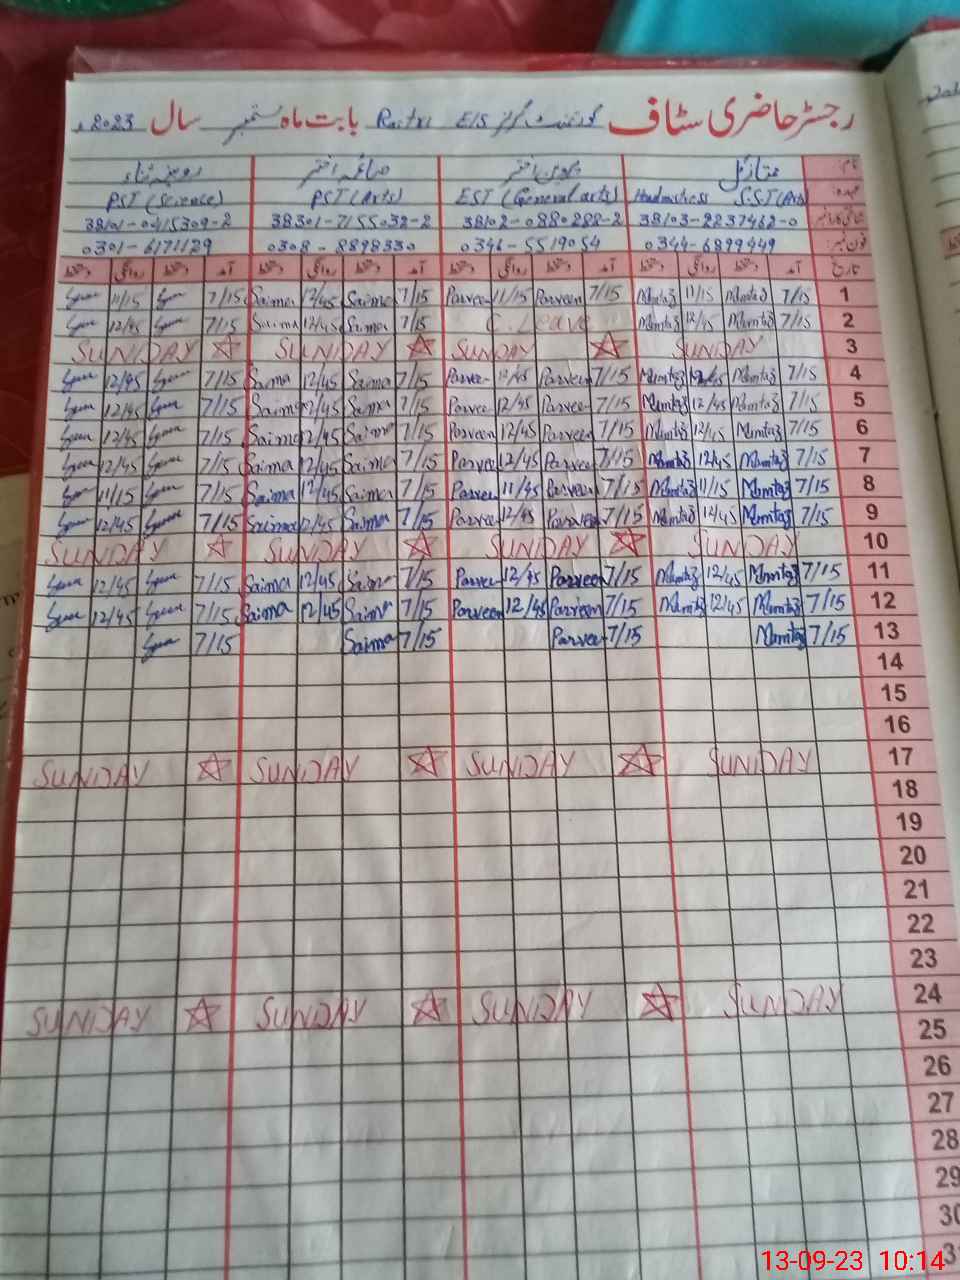 رجسٹر حاضری سٹاف گورنمنٹ گرلز E/S بابت ماہ ستمبر سال 2023ء
نام: ممتاز گل پروین اختر صائمہ اختر روبینہ ثناء
عہدہ: Headmistress S.S.T(Arts) EST (General arts) PST(Arts) PST (Science)
شناختی کارڈ نمبر 38103-2237462-0 38102-0880288-2 38301-7155032-2 38101-0415309-2
فون نمبر: 0344-6899449 0346-5519054 0308-8898330 0301-6171129
تاریخ آمد دستخط روانگی دستخط آمد دستخط روانگی دستخط آمد دستخط روانگی دستخط آمد دستخط روانگی دستخط
1 7/15 Mumtaz 11/15 Mumtaz 7/15 Parveen 11/15 Parveen 7/15 Saima 12/45 Saima 7/15 11/15
2 7/15 Mumtaz 12/45 Mumtaz C. Leave 7/15 Saima 12/45 Saima 7/15 12/45
3 SUNDAY SUNDAY SUNDAY SUNDAY
4 7/15 Mumtaz 12/45 Mumtaz 7/15 Parveen 12/45 Parveen 7/15 Saima 12/45 Saima 7/15 12/45
5 7/15 Mumtaz 12/45 Mumtaz 7/15 Parveen 12/45 Parveen 7/15 Saima 12/45 Saima 7/15 12/45
6 7/15 Mumtaz 12/45 Mumtaz 7/15 Parveen 12/45 Parveen 7/15 Saima 12/45 Saima 7/15 12/45
7 7/15 Mumtaz 12/45 Mumtaz 7/15 Parveen 12/45 Parveen 7/15 Saima 12/45 Saima 7/15 12/45
8 7/15 Mumtaz 11/15 Mumtaz 7/15 Parveen 11/45 Parveen 7/15 Saima 12/45 Saima 7/15 11/15
9 7/15 Mumtaz 12/45 Mumtaz 7/15 Parveen 12/45 Parveen 7/15 Saima 12/45 Saima 7/15 12/45
10 SUNDAY SUNDAY SUNDAY SUNDAY
11 7/15 Mumtaz 12/45 Mumtaz 7/15 Parveen 12/45 Parveen 7/15 Saima 12/45 Saima 7/15 12/45
12 7/15 Mumtaz 12/45 Mumtaz 7/15 Parveen 12/45 Parveen 7/15 Saima 12/45 Saima 7/15 12/45
13 7/15 Mumtaz 7/15 Parveen 7/15 Saima 7/15
14
15
16
17 SUNDAY SUNDAY SUNDAY SUNDAY
18
19
20
21
22
23
24 SUNDAY SUNDAY SUNDAY SUNDAY
25
26
27
28
29
30
13-09-23 10:14